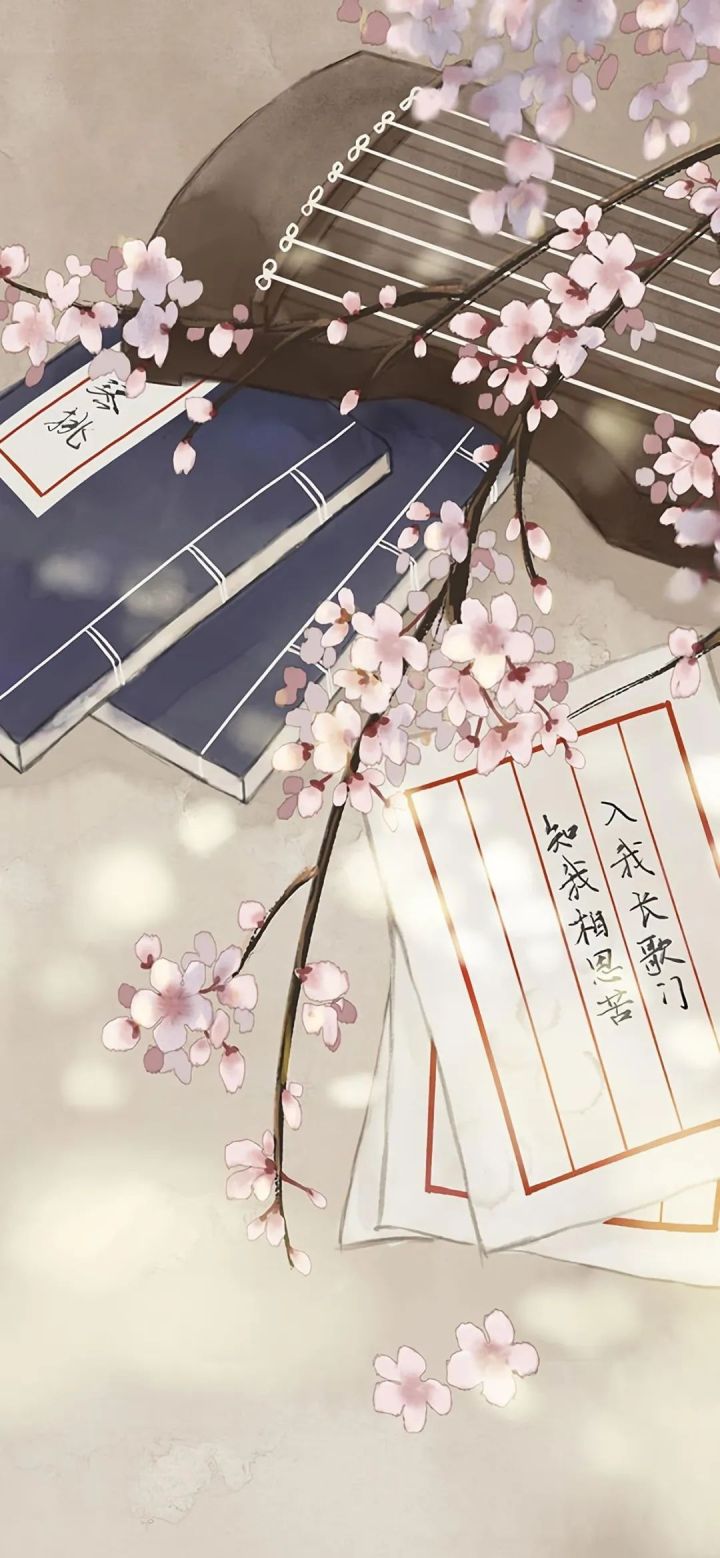 琴挑
入我长歌门
知我相思苦